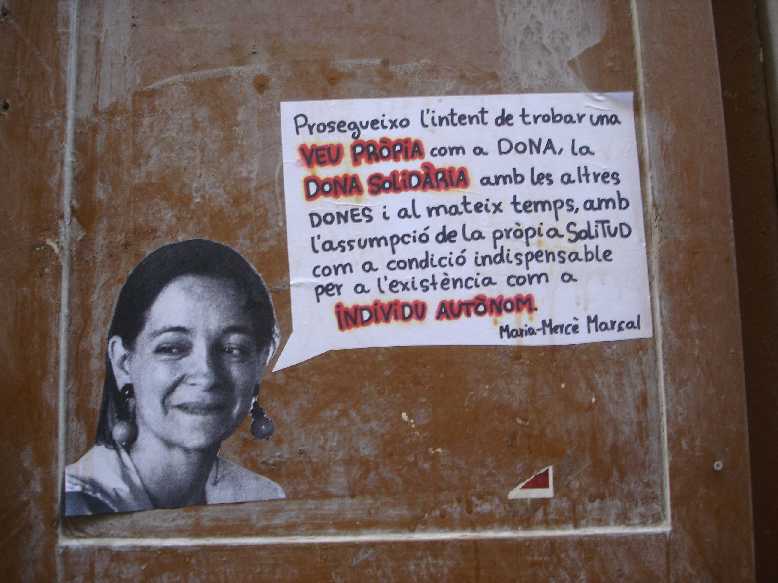 Prosegueixo l'intent de trobar una
VEU PRÒPIA com a DONA, la
DONA SOLIDÀRIA amb les altres
DONES i al mateix temps, amb
l'assumpció de la pròpia SoLiTUD
com a condició indispensable
per a l'existència com a
INDIVIDU AUTÒNOM.
Maria-Mercè Marçal